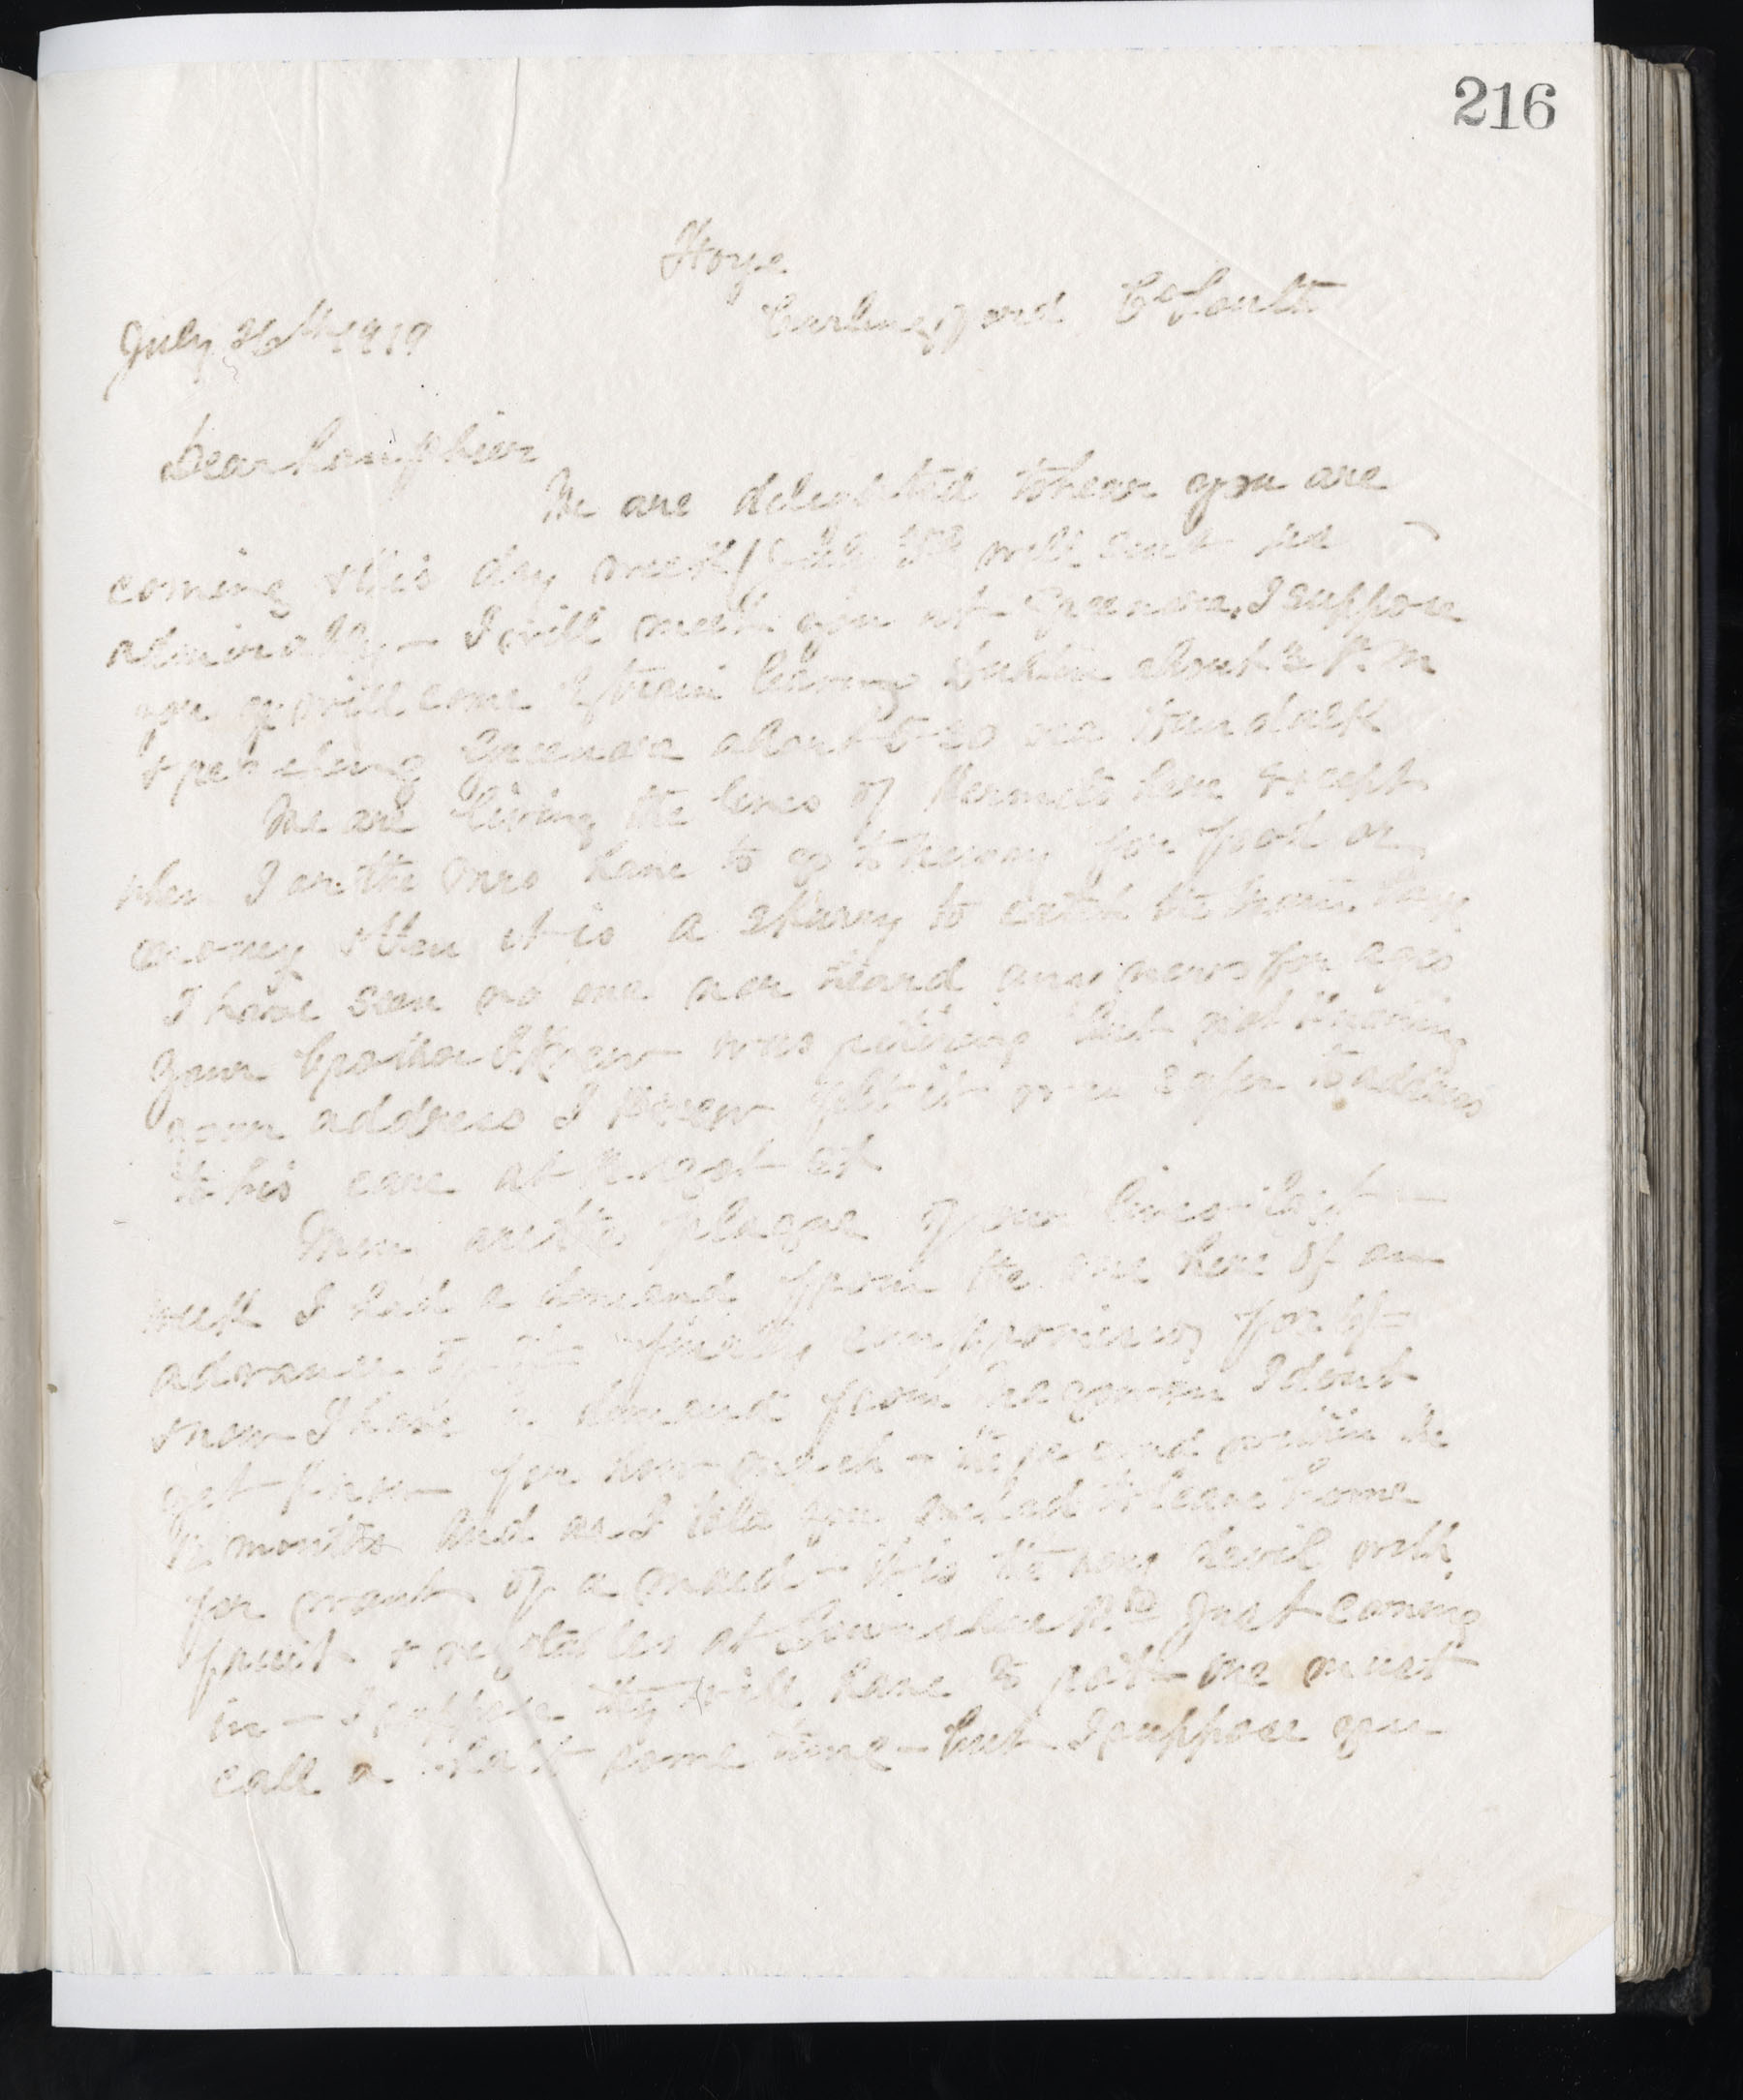 216
Carlingford Co Louth
July 26th 1919
Dear Lamphier
We are delighted to hear you are
coming & this day week will suit us
admirably - I will meet you at Greenore. I suppose
you will come by train leaving Dublin about 3 P.M
& reaching Greenore about 5-30 via Dundalk
We are living the lives of Hermits here except
when I or the Mrs have to go to Newry for food or
money & then it is a skurry to catch the train
I have seen no one nor heard any news for ages
Your brother I knew was retiring but not knowing
your address I felt it safer to address
to his care at
Men are the plague of our lives last
week I had a demand from the one here of an
advance of finally compromising for
& now I have a demand from I dont
yet know for how much - the second within the
12 months and as I told you we had to leave home
for want of a maid - this the very devil with
fruit & vegetables at just coming
in - I suppose they will have to rot - one must
call a halt some time - but I suppose you